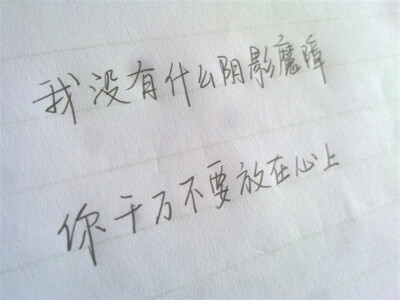 我没有什么阴影魔障
你千万不要放在心上